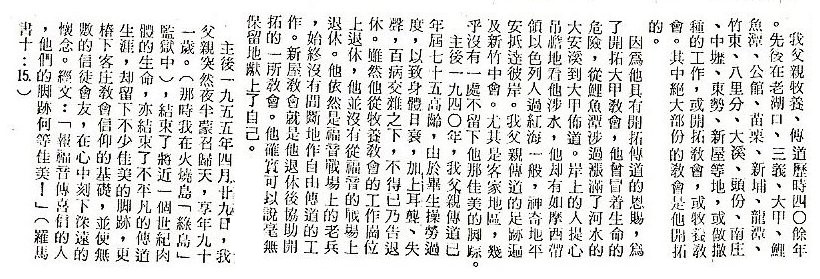 我父親牧養、傳道歷時四〇餘年
。先後在老湖口、三義、大甲、鯉
魚潭、公館、苗栗、新埔、龍潭、
竹東、八里分、大溪、頭份、南庄
、中壢、東勢、新屋等地，或做撒
種的工作，或開拓教會，或牧養教
會。其中絕大部份的教會是他開拓
的。
因爲他具有開拓傳道的恩賜，爲
了開拓大甲教會，他曾冒着生命的
危險，從鯉魚潭涉過漲滿了河水的
大安溪到大甲佈道。岸上的人提心
吊膽地看他涉水，他却有如摩西帶
領以色列人過紅海一般，神奇地平
安抵達彼岸。我父親傳道的足跡遍
及新竹中會。尤其是客家地區，幾
乎沒有一處不留下他那佳美的脚踪。
主後一九四〇年，我父親傳道已
年屆七十五高齡，由於畢生操勞過
度，以致身體日衰，加上耳聾、失
聲，百病交雜之下，不得已乃告退
休。雖然他從牧養教會的工作崗位
上退休，他並沒有從福音的戰場上
退休。他依然是福音戰場上的老兵
，始終沒有間斷地作自由傳道的工
作。新屋教會就是他退休後協助開
拓的一所教會。他確實可以說毫無
保留地獻上了自己。
主後一九五五年四月廿九日，我
父親突然夜半蒙召歸天，享年九十
一歲。（那時我在火燒島「綠島」
監獄中），結束了將近一個世紀肉
體的生命，亦結束了不平凡的傳道
生涯，却留下不少佳美的脚跡，更
樁下客庄教會信仰的基礎，並使無
數的信徒會友，在心中刻下深遠的
懷念。經文：「報福音傳喜信的人
，他們的脚跡何等佳美！」（羅馬
書十：15.）